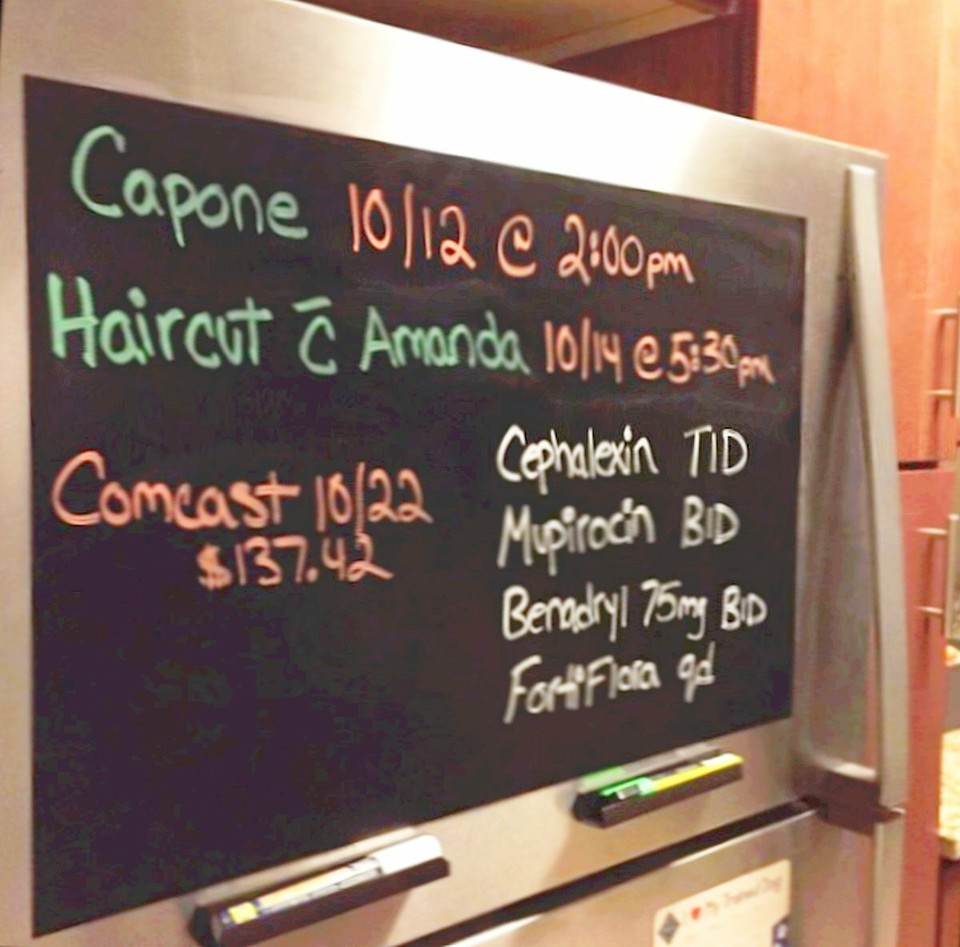 Capone 10/12 @ 2:00pm
Haircut c̄ Amanda 10/14 @ 5:30pm
Comcast 10/22
$137.42
Cephalexin TID
Mupirocin BID
Benadryl 75mg BID
FortiFlora qd
I ♥ My
Dog